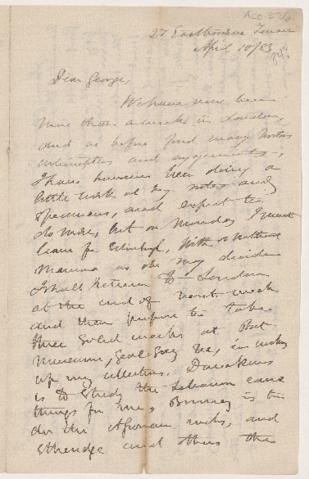 27 Eastbourne Terrace
April 10/83
Dear George,
We have now been
more than a week in London,
and as before find many
interruptions and engagements,
I have however been doing a
little work at my notes and
specimens, and expect to
do more, but on Monday I must
leave for Edinburgh, with or without
Mamma as she may decide
I shall return to London
at the end of next week
and then propose to take
three solid weeks at Brit
Museum, Geol Survey &c, in working
up my collections. Dawkins
is to study the Lebanon cave
things for me, Bonney is to
do the Egyptian rocks, and
Etheridge and others the